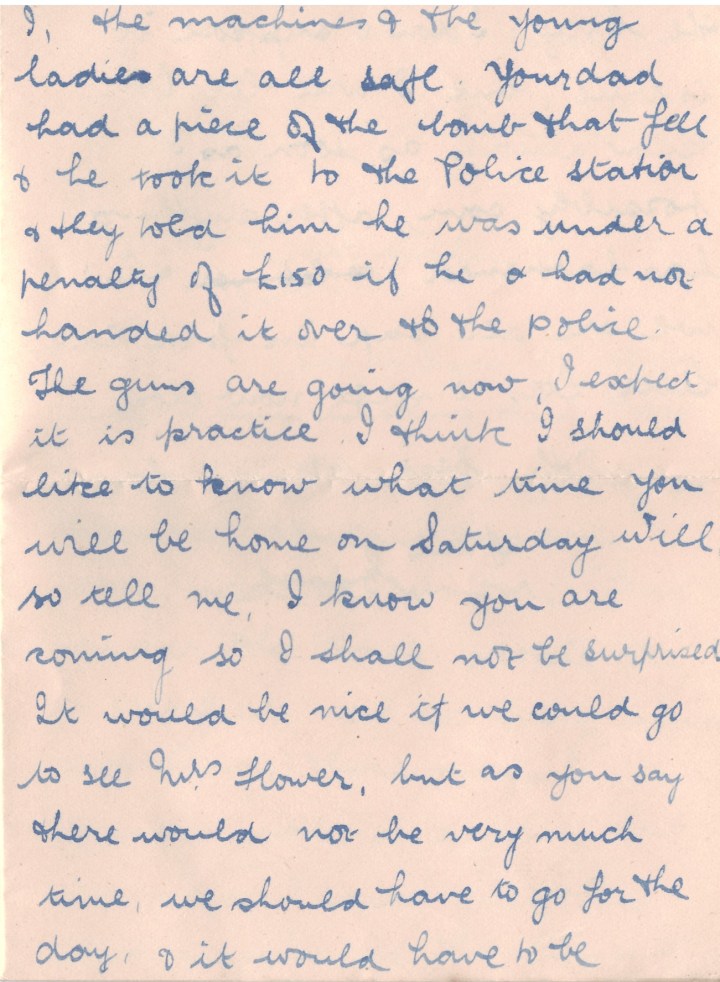 I, the machines & the young
ladies are all safe. Your dad
had a piece of the bomb that fell
& he took it to the Police station
& they told him he was under a
penalty of £150 if he & had not
handed it over to the police.
The guns are going now, I expect
it is practice. I think I should
like to know what time you
will be home on Saturday Will,
so tell me, I know you are
coming so I shall not be surprised
It would be nice if we could go
to see Mrs Flower, but as you say
there would not be very much
time, we should have to go for the
day, & it would have to be